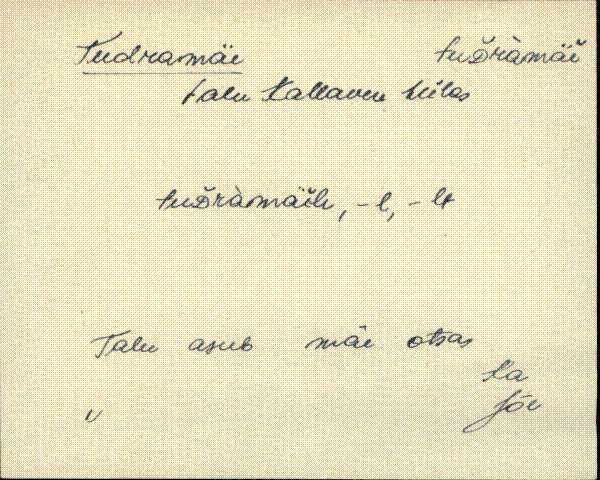 Tudramäe tuᴅ̆ràmäĕ
talu Kallavere külas
tuᴅ̆ràmäĕle, -l, -lt
Talu asub mäe otsas
Ka
Jõe
"